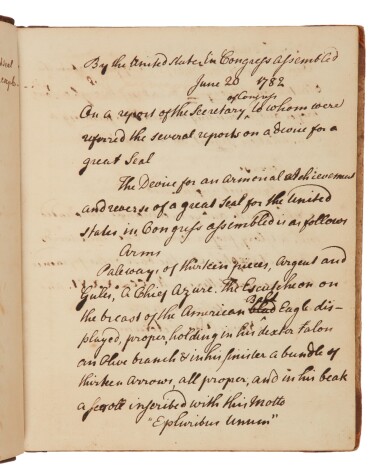 By the United States in Congress Assembled
June 20 1782
of Congress
On a report of the Secretary, to whom were
referred the several reports on a device for a
great Seal
The Device for an armorial Atchievement
and reverse of a great Seal for the United
States in Congress assembled is as follows
Arms
Paleways of thirteen pieces, Argent and
Gules, A Chief Azure. The Escutcheon on
Bald
the breast of the American Eagle dis-
played, proper, holding in his dexter talon
an Olive branch & in his sinister a bundle of
thirteen Arrows, all proper, and in his beak
a scroll inscribed with this Motto
"E pluribus Unum"